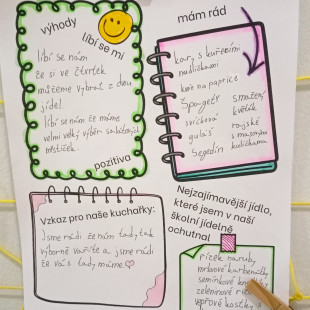 výhody
líbí se mi
líbí se nám
že si ve čtvrtek
můžeme vybrat z dvou
jídel.
líbí se nám že máme
velmi velký výběr salátových
mističek.
pozitiva
mám rád
kary s kuřecími
nudličkami
kuře na paprice
Špagety
svíčková
guláš
Segedín
smažený
květák
rajská
s masovými
kuličkama
Vzkaz pro naše kuchařky:
Jsme rádi že nám tady tak
výborně vaříte a jsme rádi
že vás tady máme
Nejzajímavější jídlo,
které jsem v naší
školní jídelně
ochutnal
řízek naruby
mrkvové karbenátky
semínkové
zeleninové
vepřové kostky